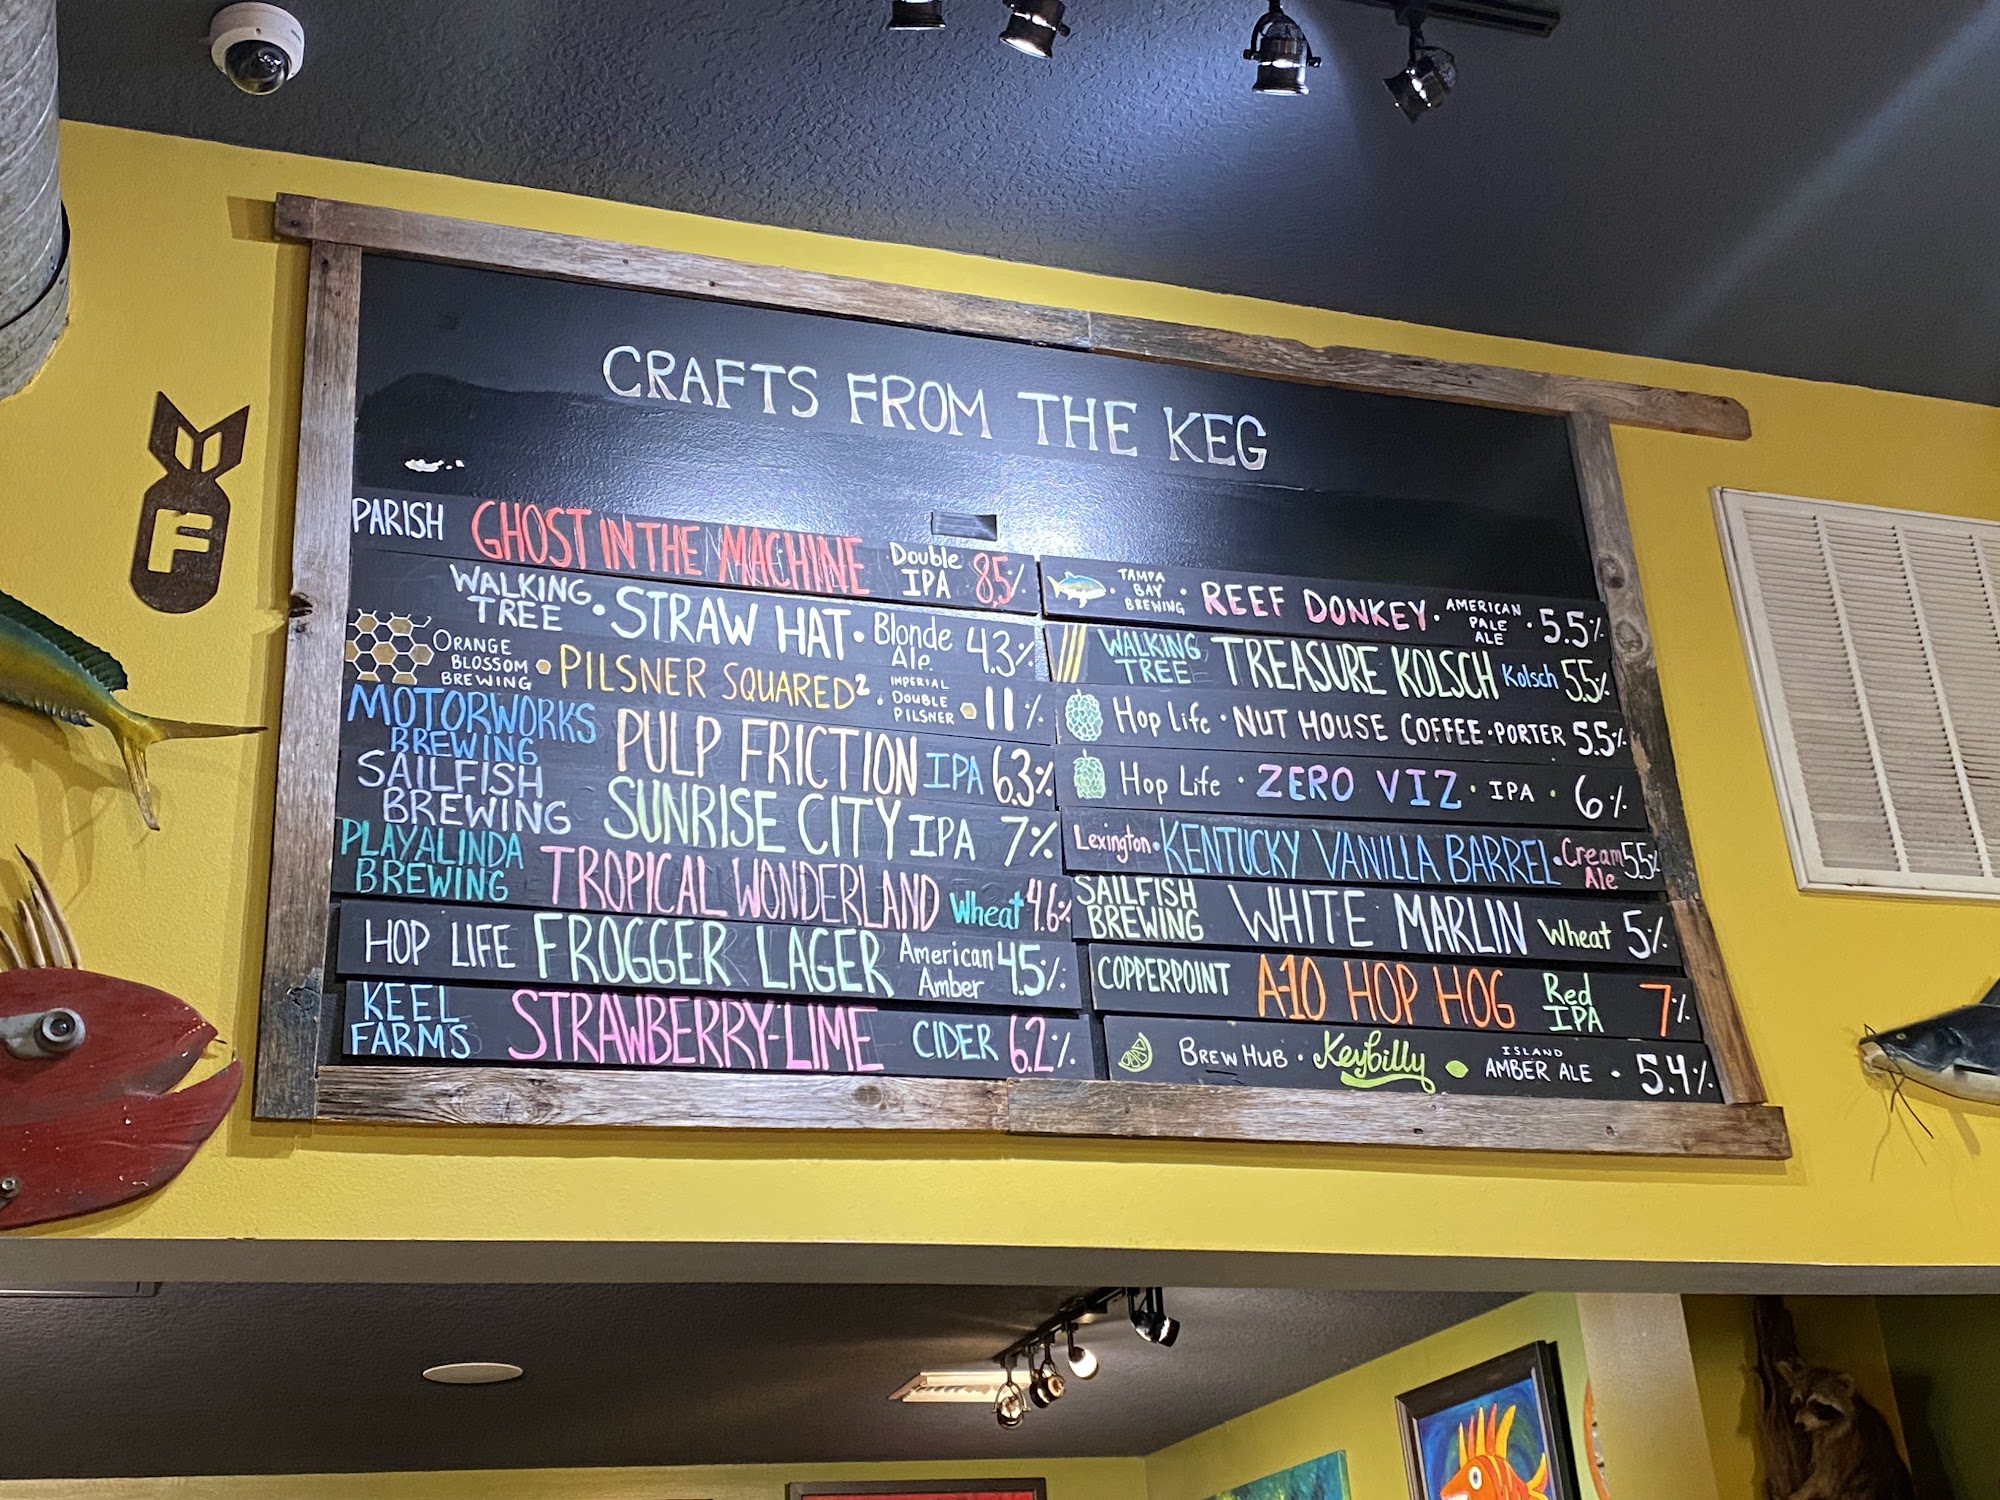 CRAFTS FROM THE KEG
PARISH GHOST IN THE MACHINE Double IPA 8.5%
WALKING TREE • STRAW HAT • Blonde Ale 4.3%
ORANGE BLOSSOM BREWING PILSNER SQUARED² • IMPERIAL DOUBLE PILSNER 11%
MOTORWORKS BREWING PULP FRICTION IPA 6.3%
SAILFISH BREWING SUNRISE CITY IPA 7%
PLAYALINDA BREWING TROPICAL WONDERLAND Wheat 4.6%
HOP LIFE FROGGER LAGER American Amber 4.5%
KEEL FARMS STRAWBERRY-LIME CIDER 6.2%
• TAMPA BAY BREWING • REEF DONKEY • AMERICAN PALE ALE • 5.5%
WALKING TREE TREASURE KOLSCH Kolsch 5.5%
Hop Life • NUT HOUSE COFFEE • PORTER 5.5%
Hop Life • ZERO VIZ • IPA • 6%
Lexington • KENTUCKY VANILLA BARREL • Cream Ale 5.5%
SAILFISH BREWING WHITE MARLIN Wheat 5%
COPPERPOINT A-10 HOP HOG Red IPA 7%
BREW HUB • Keybilly ISLAND AMBER ALE • 5.4%
F